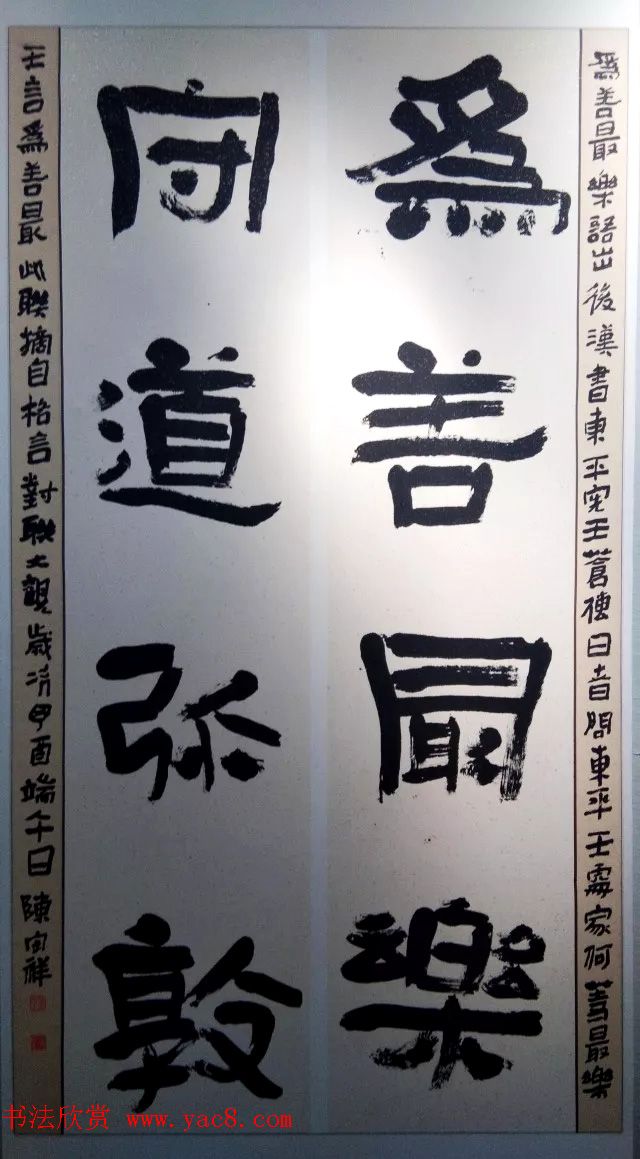 為善最樂語出後漢書東平宪王蒼日者問東平王處家何等最樂
為善最樂
守道弥敦
王言為善最此聯摘自格言對联大觀歲次甲酉端午日陳祥
书法欣赏 www.yac8.com